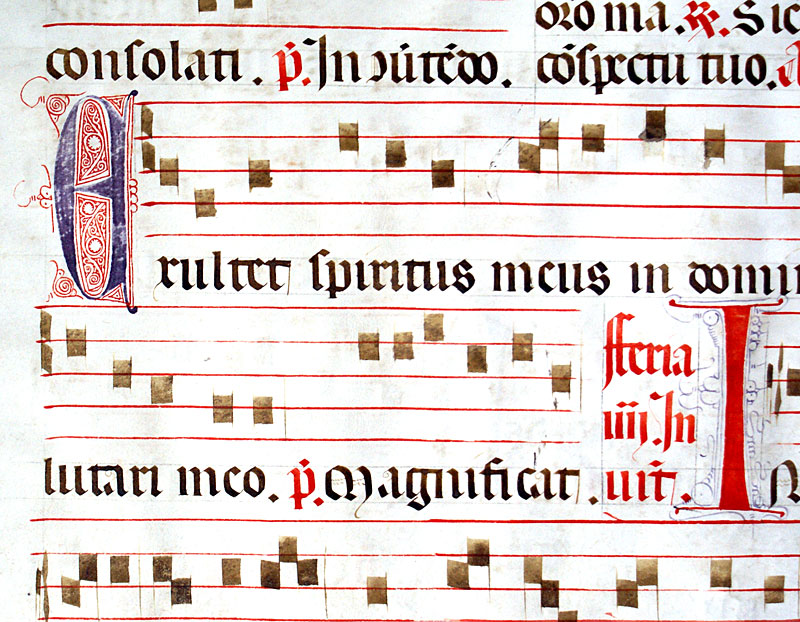 oro ma. R. Sic
consolati. p̄. In
cōspectu tuo.
Exultet spiritus meus in domin
lutari meo. p̄. Magnificat.
fferia
iiij. In
uit̄. I